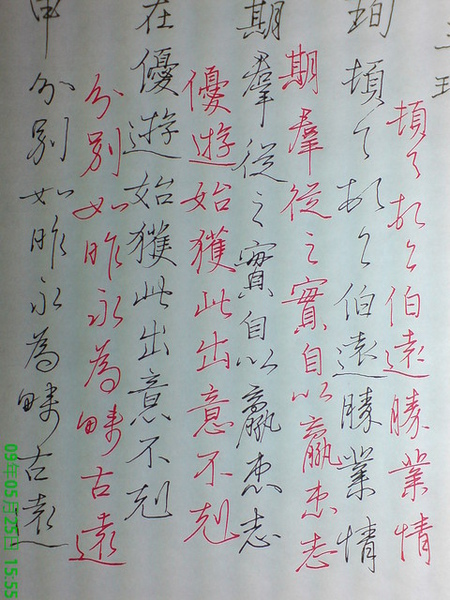 頓〻首〻伯遠勝業情
珣頓〻首〻伯遠勝業情
期羣從之實自以羸患志
期羣從之實自以羸患志
優遊始獲此出意不剋
在優遊始獲此出意不剋
分別如昨永為疇古遠
申分別如昨永為疇古遠
09年05月25日 15:55